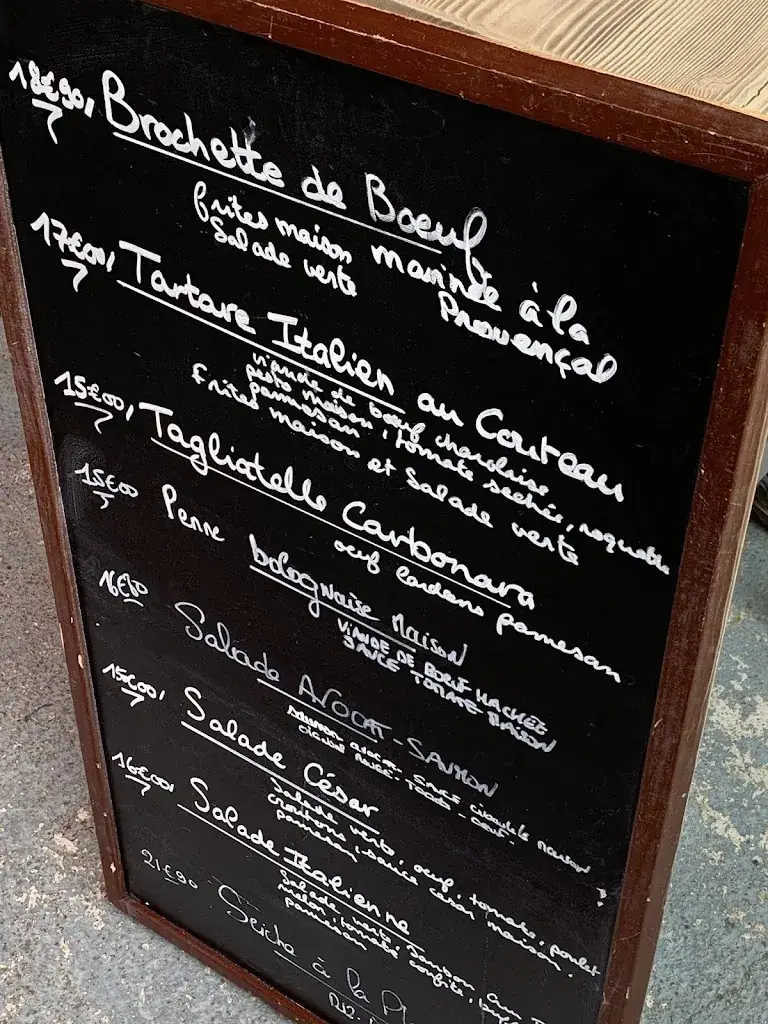 18€90, Brochette de Boeuf
frites maison marinée à la
Salade verte Provençal
17€00, Tartare Italien au Couteau
viande de boeuf charolaise
pesto maison, tomate sechée, roquette
parmesan
frites maison et Salade verte
15€00, Tagliatelle Carbonara
oeuf lardons parmesan
15€00 Penne bolognaise MAISON
VIANDE DE BOEUF HACHEE
SAUCE TOMATE MAISON
Salade AVOCAT - SAUMON
saumon avocat - sauce ciboulette maison
oignon rouge - - oeuf.
15€00, Salade César
Salade verte, oeuf, tomate, poulet
croutons, sauce cesar maison.
parmesan
16€00, Salade Italienne
Salade verte, Jambon
melon, tomate confite,
parmesan
21€90 Seiche à la